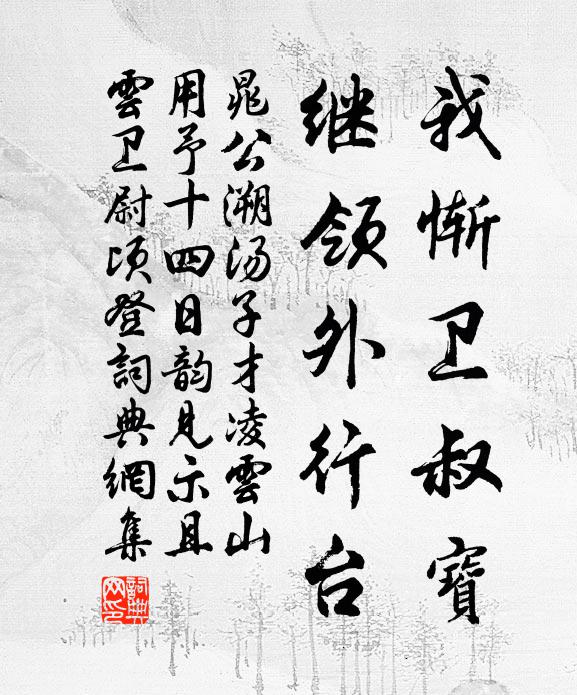 我惭卫叔寶
继领外行台
晁公溯汤子才凌雲山
用予十四日韵见示且
雲卫尉顷登詞典網集
詞典网印